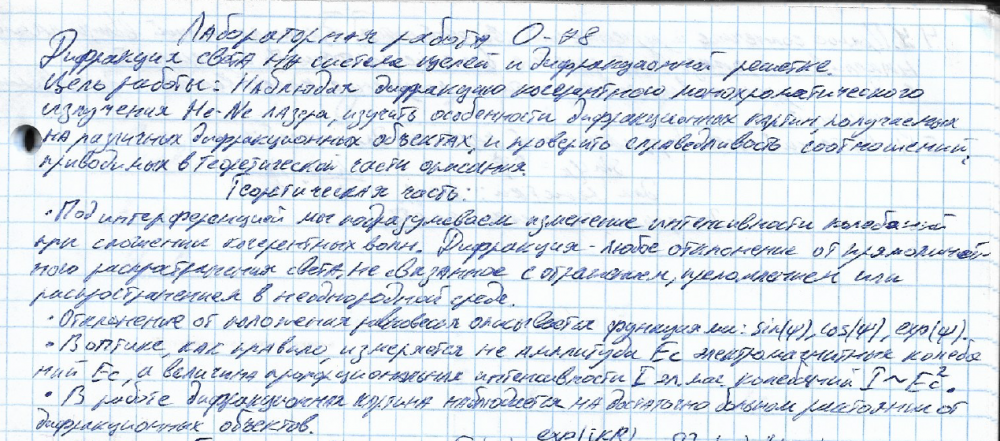 Лабораторная работа О-78
Дифракция света на системе щелей и дифракционной решетке.
Цель работы: Наблюдая дифракцию когерентного монохроматического
излучения He-Ne лазера, изучить особенности дифракционных картин, получаемых
на различных дифракционных объектах, и проверить справедливость соотношений,
приводимых в теоретической части описания.
Теоретическая часть:
• Под интерференцией мы подразумеваем изменение интенсивности колебаний
при сложении когерентных волн. Дифракция - любое отклонение от прямолиней-
ного распространения света, не связанное с отражением, преломлением или
распространением в неоднородной среде.
• Отклонение от положения равновесия описывается функциями: sin(φ), cos(φ), exp(φ).
• В оптике, как правило, измеряется не амплитуда Ec электромагнитных колеба
ний Ec, а величина пропорциональная интенсивности I эл. маг. колебаний I ~ Ec².
• В работе дифракционная картина наблюдается на достаточно большом расстоянии от
дифракционных объектов.
exp(ikR)